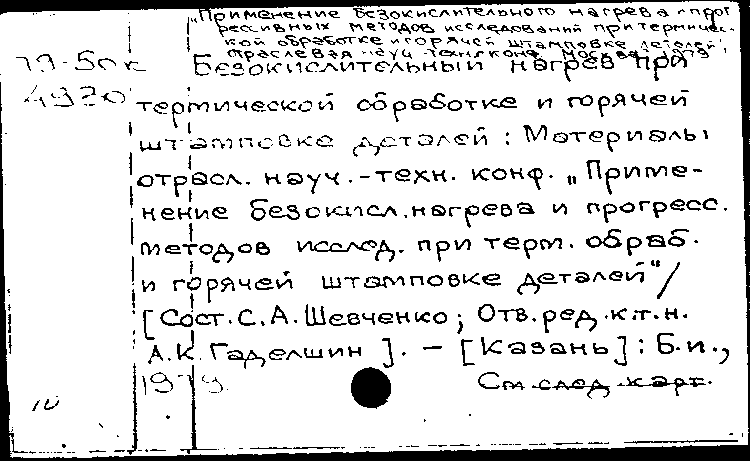 „Применение безокислительного нагрева и прог
рессивных методов исследований при термичес-
кой обработке и горячей штамповке деталей",
отраслевая науч.-техн. конф. Москва 1979
79-50к
4920
Безокислительный нагрев при
термической обработке и горячей
штамповке деталей : Материалы
отрасл. науч.-техн. конф. „Приме-
нение безокисл. нагрева и прогресс.
методов исслед. при терм. обраб.
и горячей штамповке деталей" /
[Сост. С. А. Шевченко; Отв. ред. к.т.н.
А. К. Гаделшин ]. – [Казань] : Б.и.,
1979.
См. след. карт.